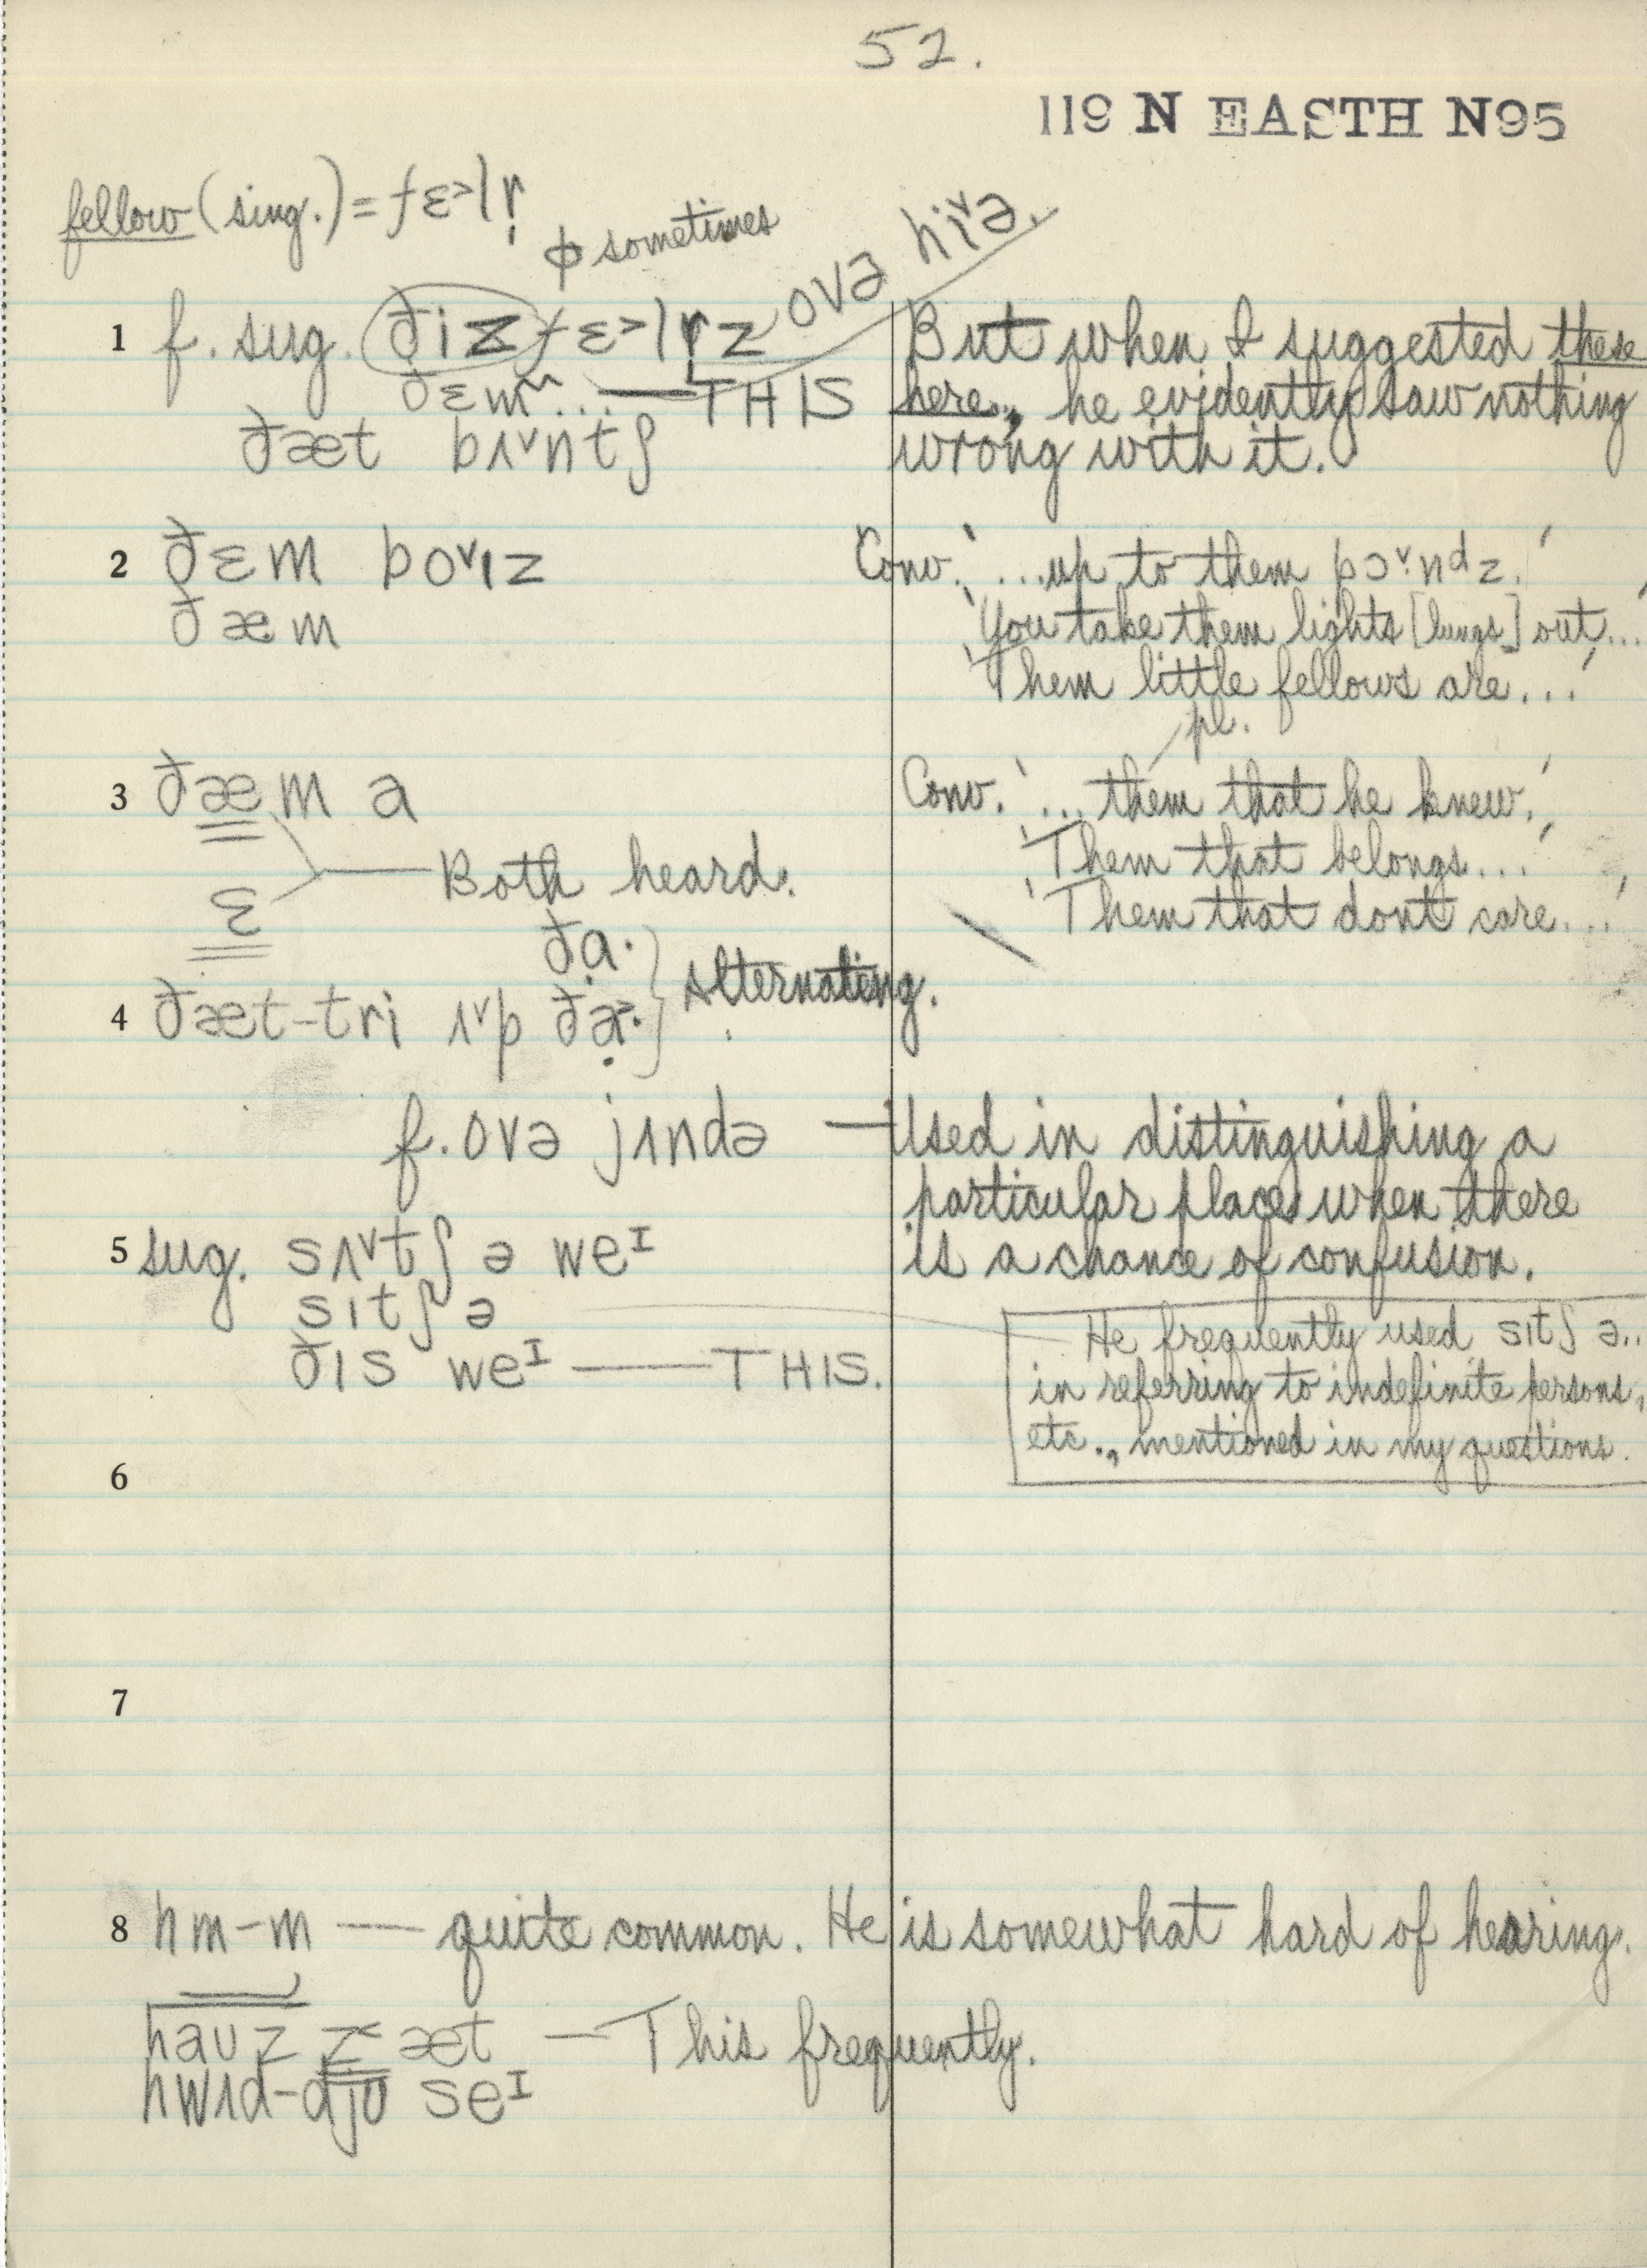 52.
119 N EASTH N95
fellow (sing.) = fɛ˃lr̩
ϕ sometimes
1 f. sug. ðiz fɛ˃lr̩z ovə hiᵛə. But when I suggested these
ðɛm ... — THIS here, he evidently saw nothing
ðæt bʌᵛntʃ wrong with it.
2 ðɛm boᵛɪz Conv. '...up to them pɔᵛ·nᵈz.'
ðæm 'You take them lights [lungs] out...'
'Them little fellows are...'
pl.
3 ðæm a Conv. '... them that he knew.'
'Them that belongs...'
ɛ — Both heard.
'Them that dont care...'
ða· } Alternating.
4 ðæt-tri ʌᵛp
f. ovə jɪndə — Used in distinguishing a
particular place when there
5 sug. sʌᵛtʃ ə weᴵ is a chance of confusion.
sɪtʃ ə
He frequently used sɪtʃ ə..
ðɪs weᴵ — THIS.
in referring to indefinite persons,
etc., mentioned in my questions.
6
7
8 hm-m — quite common. He is somewhat hard of hearing.
haʊz z˂ æt — This frequently.
hwɪd-djʊ seᴵ